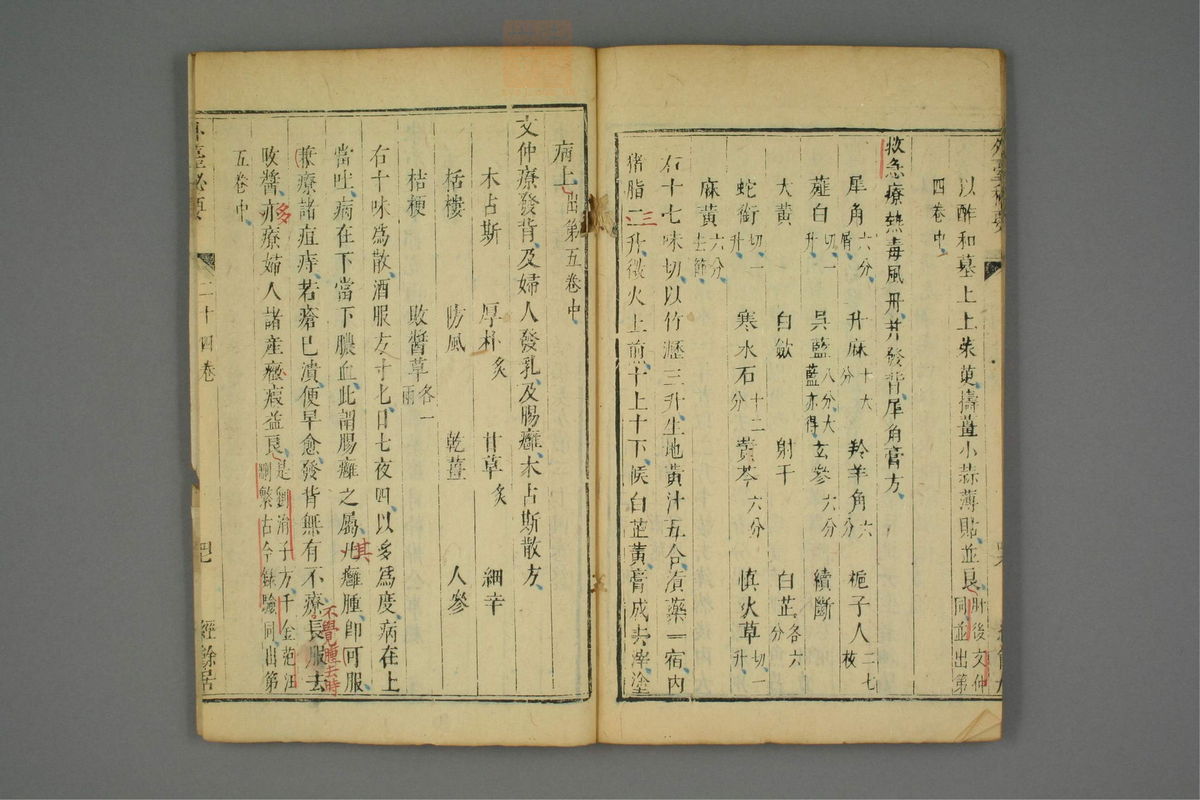 以酢和墓上土茱萸擣薑小蒜薄貼並良肘後文仲同並出第
四卷中
救急療熱毒風丹并發背犀角膏方
犀角六分屑 升麻十大分 羚羊角六分 梔子人二七枚
薤白切一升 吳藍八分大藍亦得 玄參六分 續斷
大黃 白斂 射干 白芷各六分
蛇銜切一升 寒水石十二分 黃芩六分 慎火草切一升
麻黃六分去節
右十七味切以竹瀝三升生地黃汁五合漬藥一宿內
猪脂二升微火上煎十上十下候白芷黃膏成去滓塗
三
病上出第五卷中
文仲療發背及婦人發乳及腸癰木占斯散方
木占斯 厚朴炙 甘草炙 細辛
栝樓 防風 乾薑 人參
桔梗 敗醬草各一兩
右十味為散酒服方寸七日七夜四以多為度病在上
當吐病在下當下膿血此謂腸癰之屬其癰腫即可服
兼療諸疽痔若瘡已潰便早愈發背無有不療長服去
不覺腫去時
敗醬亦療婦人諸產癥瘕益良是劉涓子方千金范汪刪繁古今錄驗同出第
多
五卷中
外臺秘要
二十四卷
經餘居